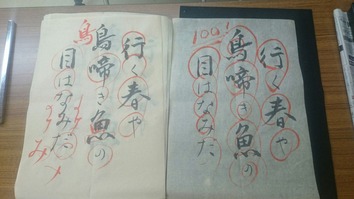 行く春や
鳥啼き魚の
目はなみだ
鳥
み
100!
行く春や
鳥啼き魚の
目はなみだ